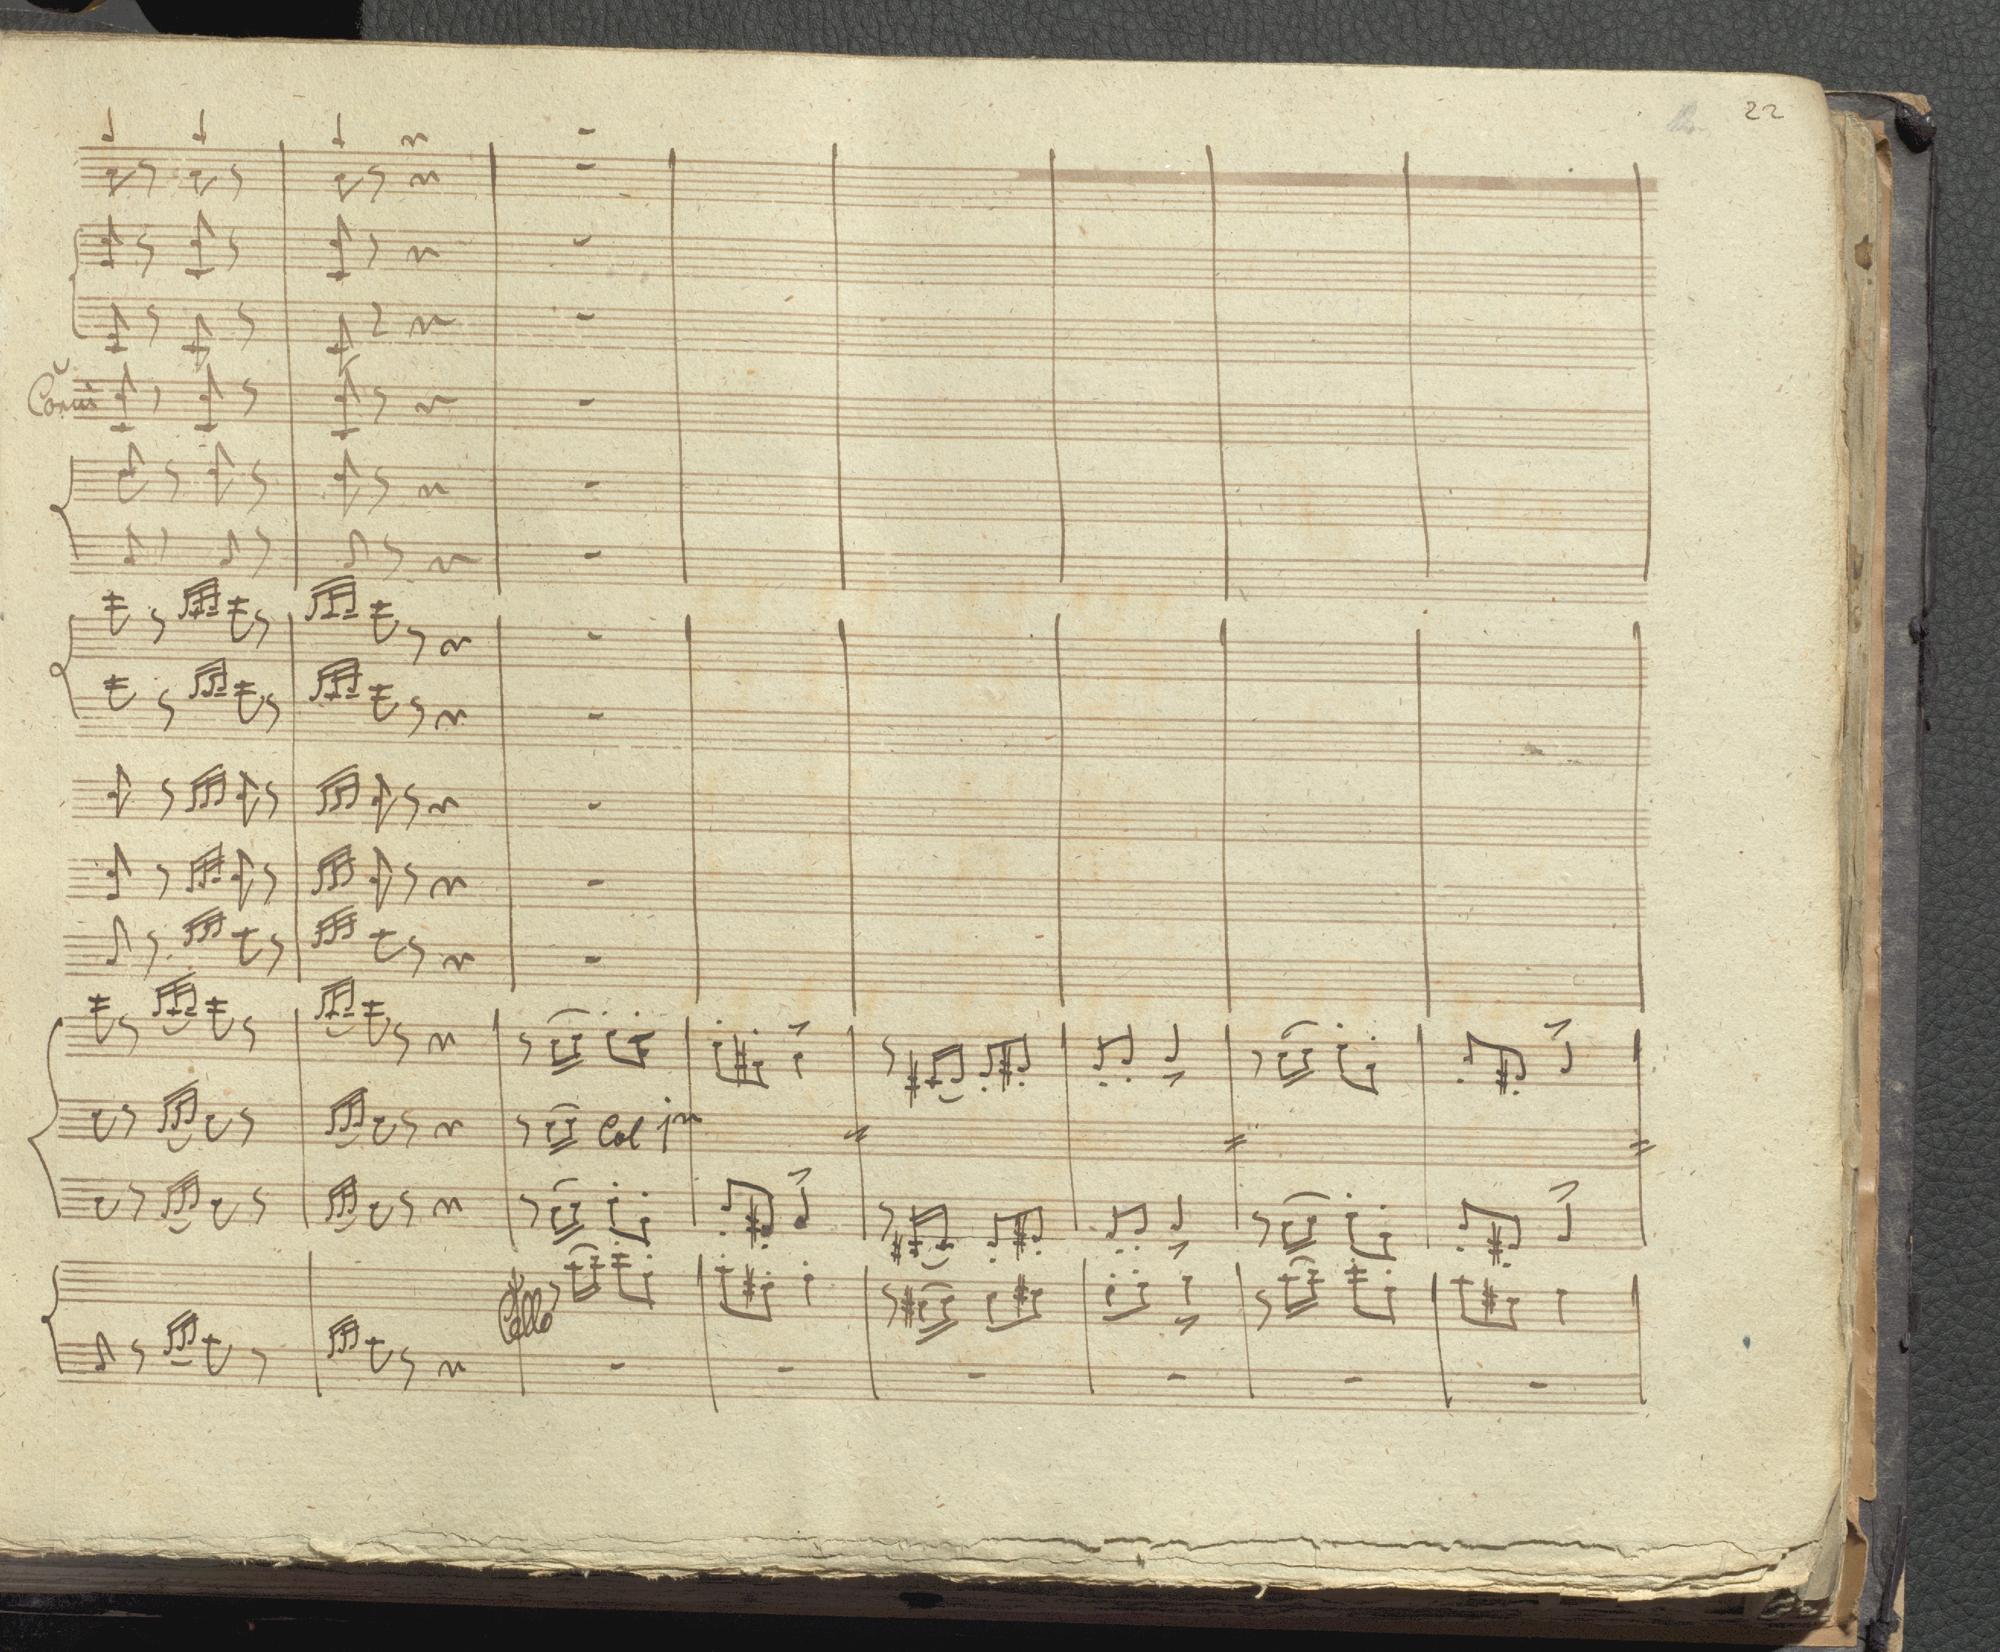 22
Corni
Col 1mo
Cello